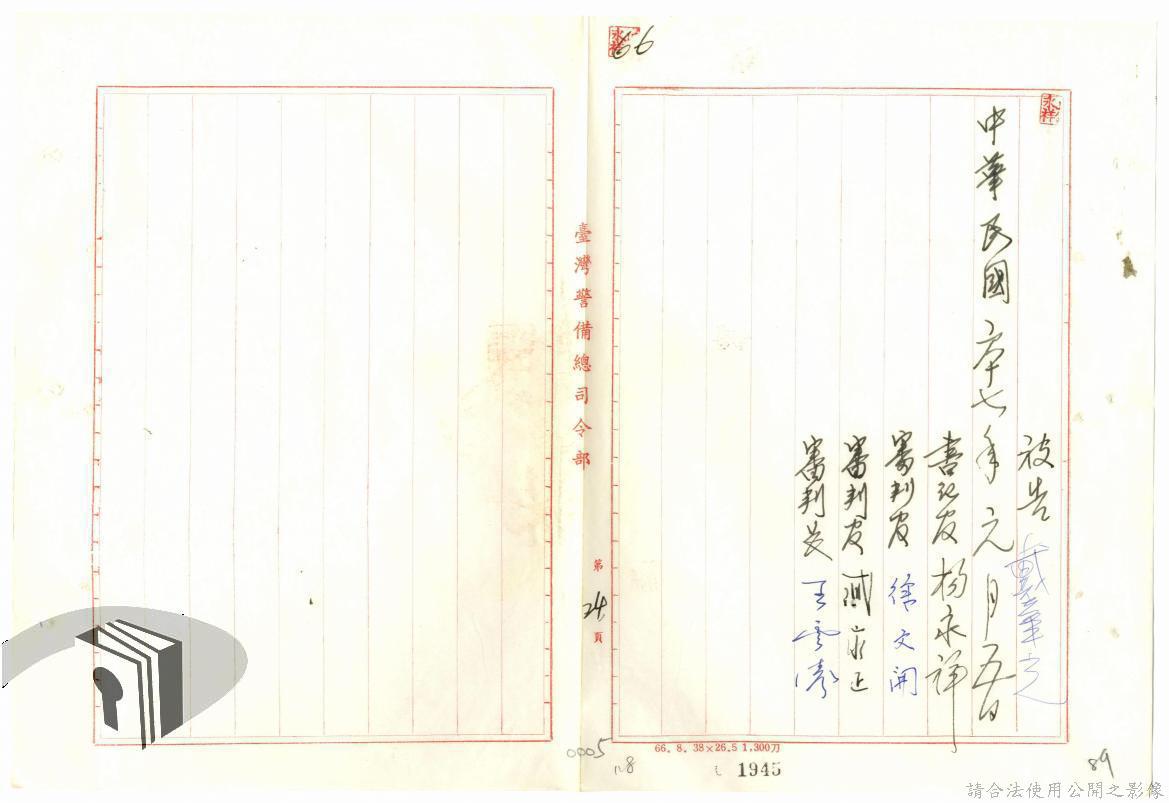 66
永祥
被告 戴華光
中華民國六十七年元月五日
書記官 楊永祥
審判官 徐文開
審判官 臧家正
審判長 王雲濤
臺灣警備總司令部
第 24 頁
66. 8. 38×26.5 1,300刀
0005
128
1945
89
請合法使用公開之影像